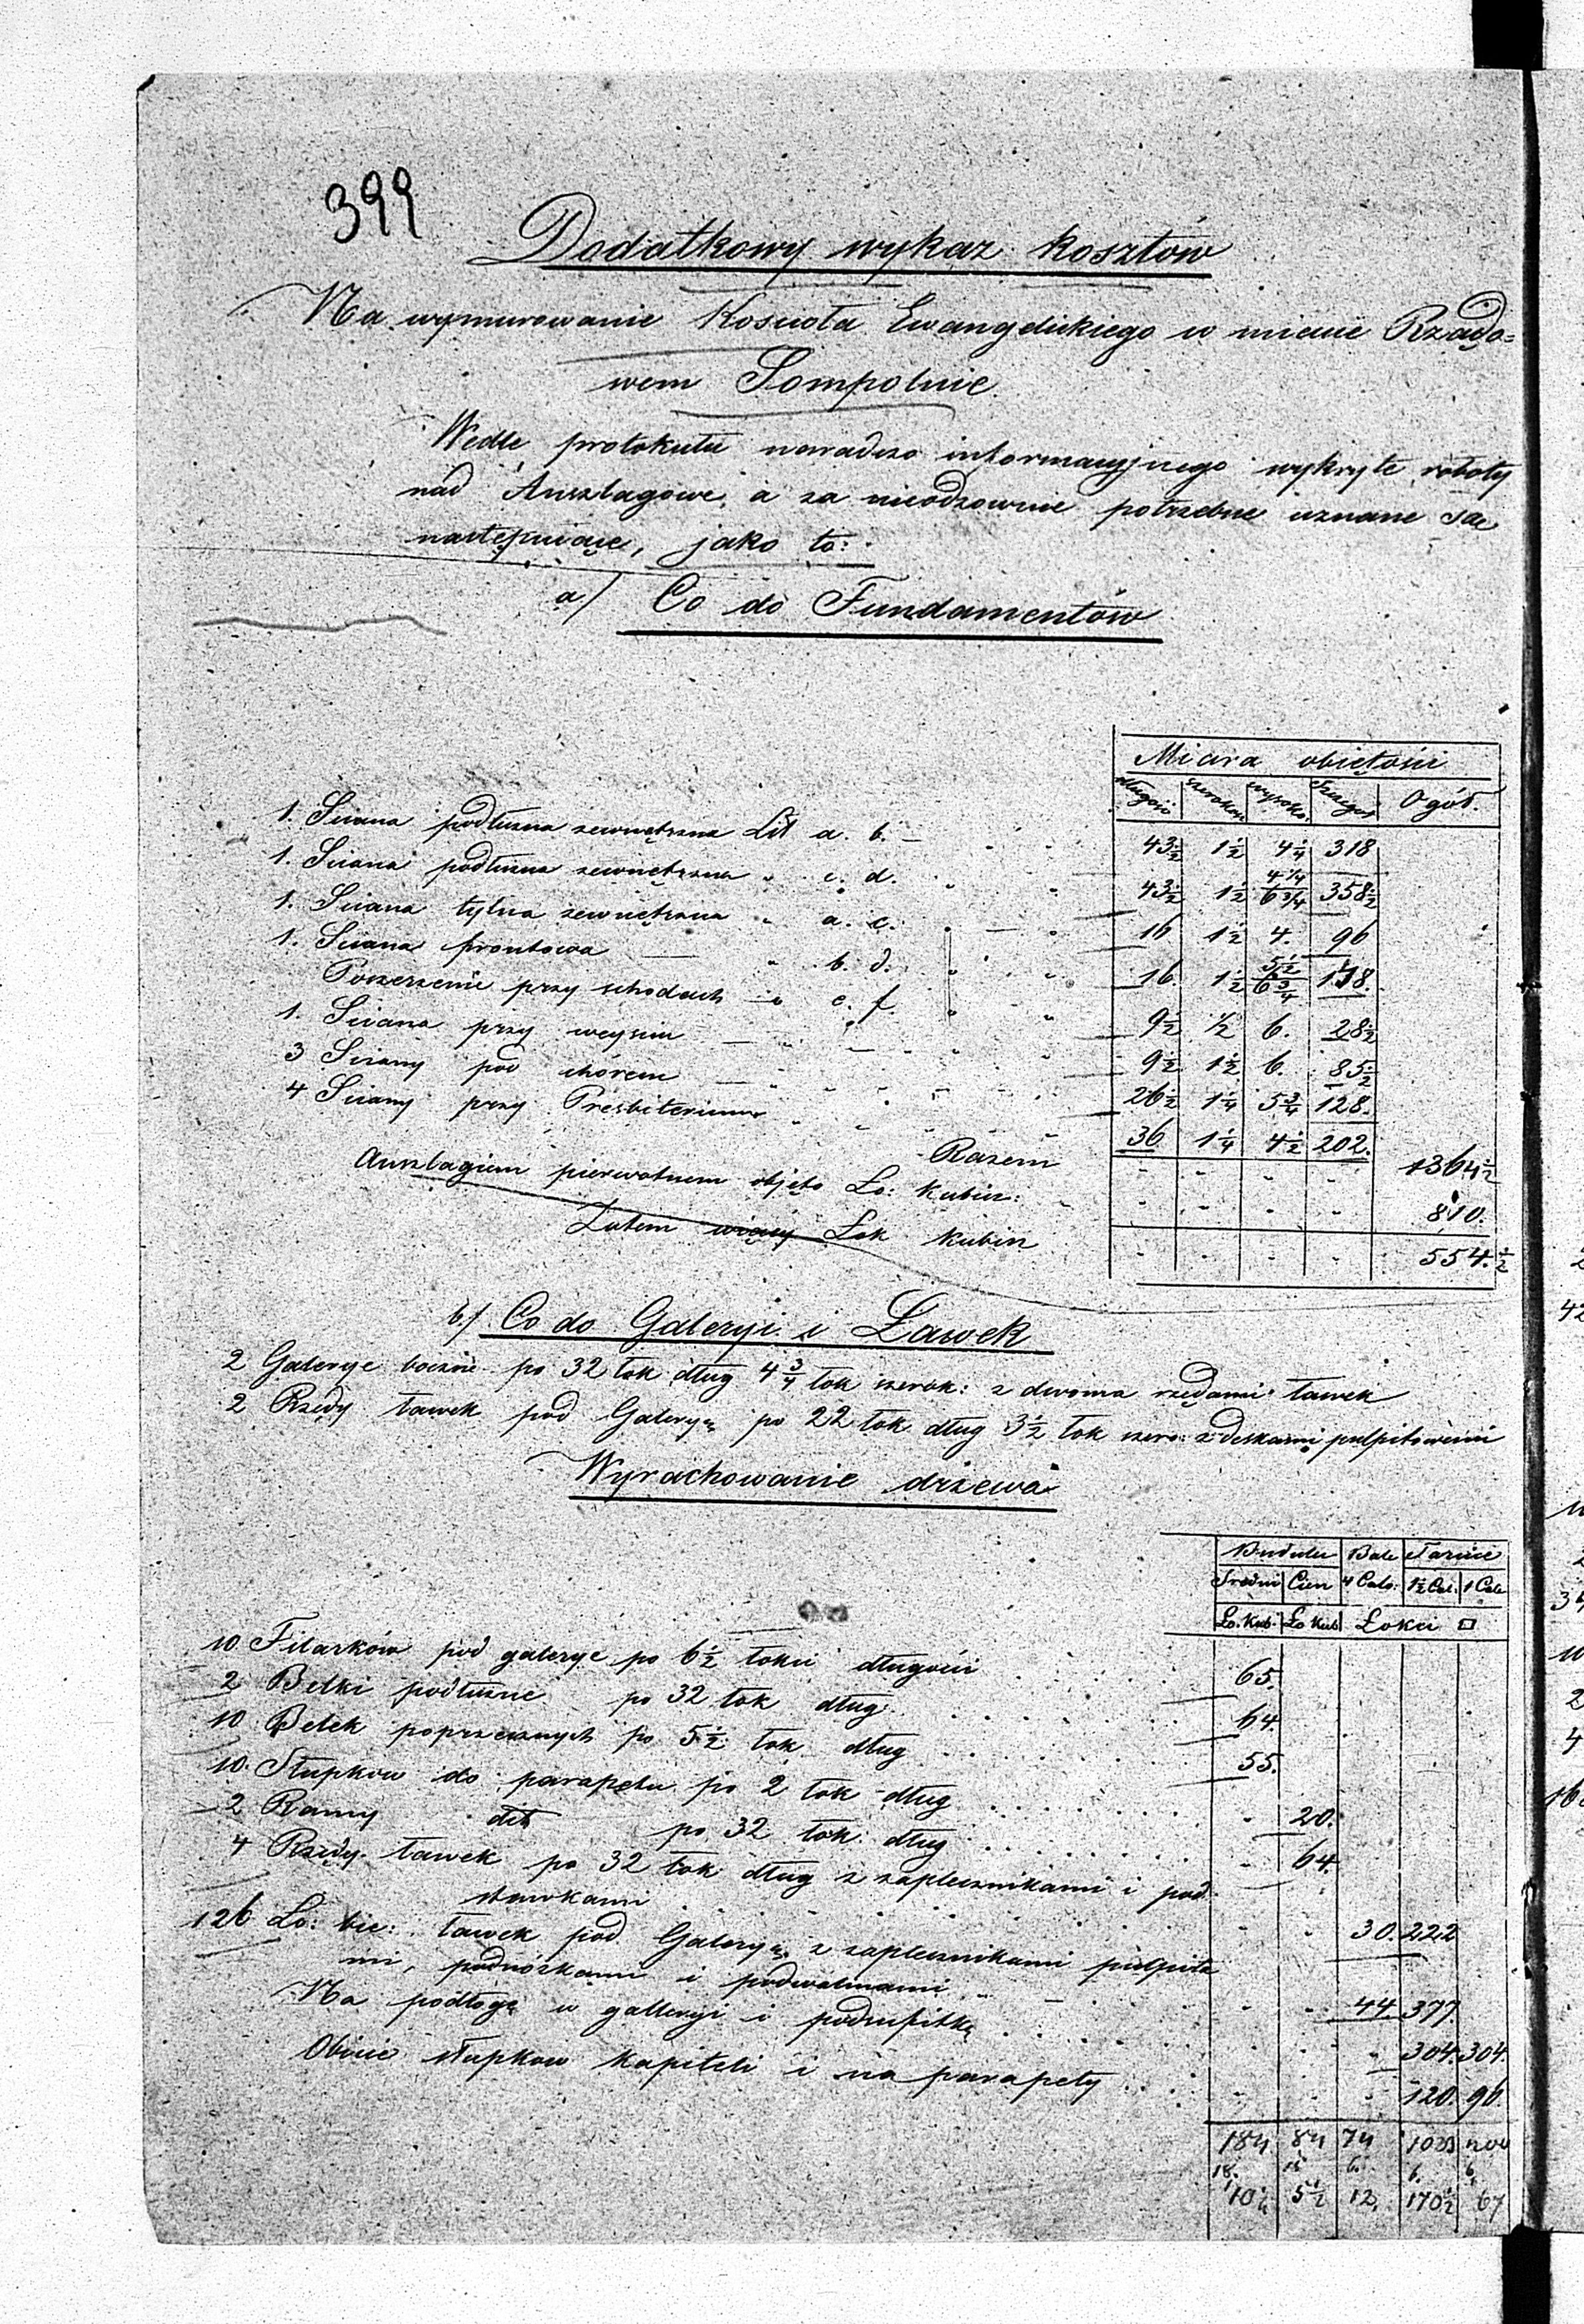 399
Dodatkowy wykaz kosztów
Na wymurowanie Kościoła Ewangelickiego w mieście Rządo=
wem Sompolnie.
Wedle protokułu informacyjnego wykryte roboty
nad Anszlagowe, a za nieodzownie potrzebne uznane są
następujące, jako to:
a/ Co do Fundamentów
Miara objętości
długość szerokoś wysoko. Szczegół Ogół.
1. Sciana podłużna zewnętrzna Lit a. b. 43½ 1½ 4¼ 318
1. Sciana podłużna zewnętrzna " c. d. 43½ 1½ 4¼ 6¾ 358½
1. Sciana tylna zewnętrzna " a. c. 16 1½ 4. 96
1. Sciana frontowa " b. d. 16. 1½ 5½ 6¾ 148.
Poszerzenie przy schodach " e. f. 9½ ½ 6. 28½
1. Sciana przy weyściu 9½ 1½ 6. 85½
3 Sciany pod chórem 26½ 1¼ 5¾ 128.
4 Sciany przy Presbiterium 36 1¼ 4½ 202.
Razem 1364½
Anszlagiem pierwotnem objęto Ło: kubicz: 810.
Zatem więcej Łok kubicz 554.½
b./ Co do Galeryi i Ławek
2 Galerye boczne po 32 łok dług 4¾ łok szerok: z dwoma rzędami ławek
2 Rzędy ławek pod Galeryą po 22 łok dług 3½ łok szero: z deskami pulpitowemi
Wyrachowanie drzewa
Budulu Bale Tarcice
Sredni Cien 4 Calo: 1½ Cal. 1 Cale
Ło. Kub. Ło Kub Łokci □
10. Filarków pod galerye po 6½ łokci długości 65.
2 Belki podłużne po 32 łok dług 64
10 Belek poprzecznych po 5½ łok dług 55.
10. Słupkow do parapetu po 2 łok dług 20.
2 Ramy dito po 32 łok dług 64.
4 Rzędy ławek po 32 łok dług z zaplecznikami i pod
stawkami 30. 222
126 Ło: bie: ławek pod Galeryą z zaplecznikami pulpita
mi, podnóżkami i podwalinami 44 377.
Na podłogę w galleryi i podsufitkę 304. 304
Obicie słupkow kapiteli i na parapety 120. 96.
184 84 74 1023 400
18. 15 6. 6. 6.
10¼ 5½ 12. 170½ 67